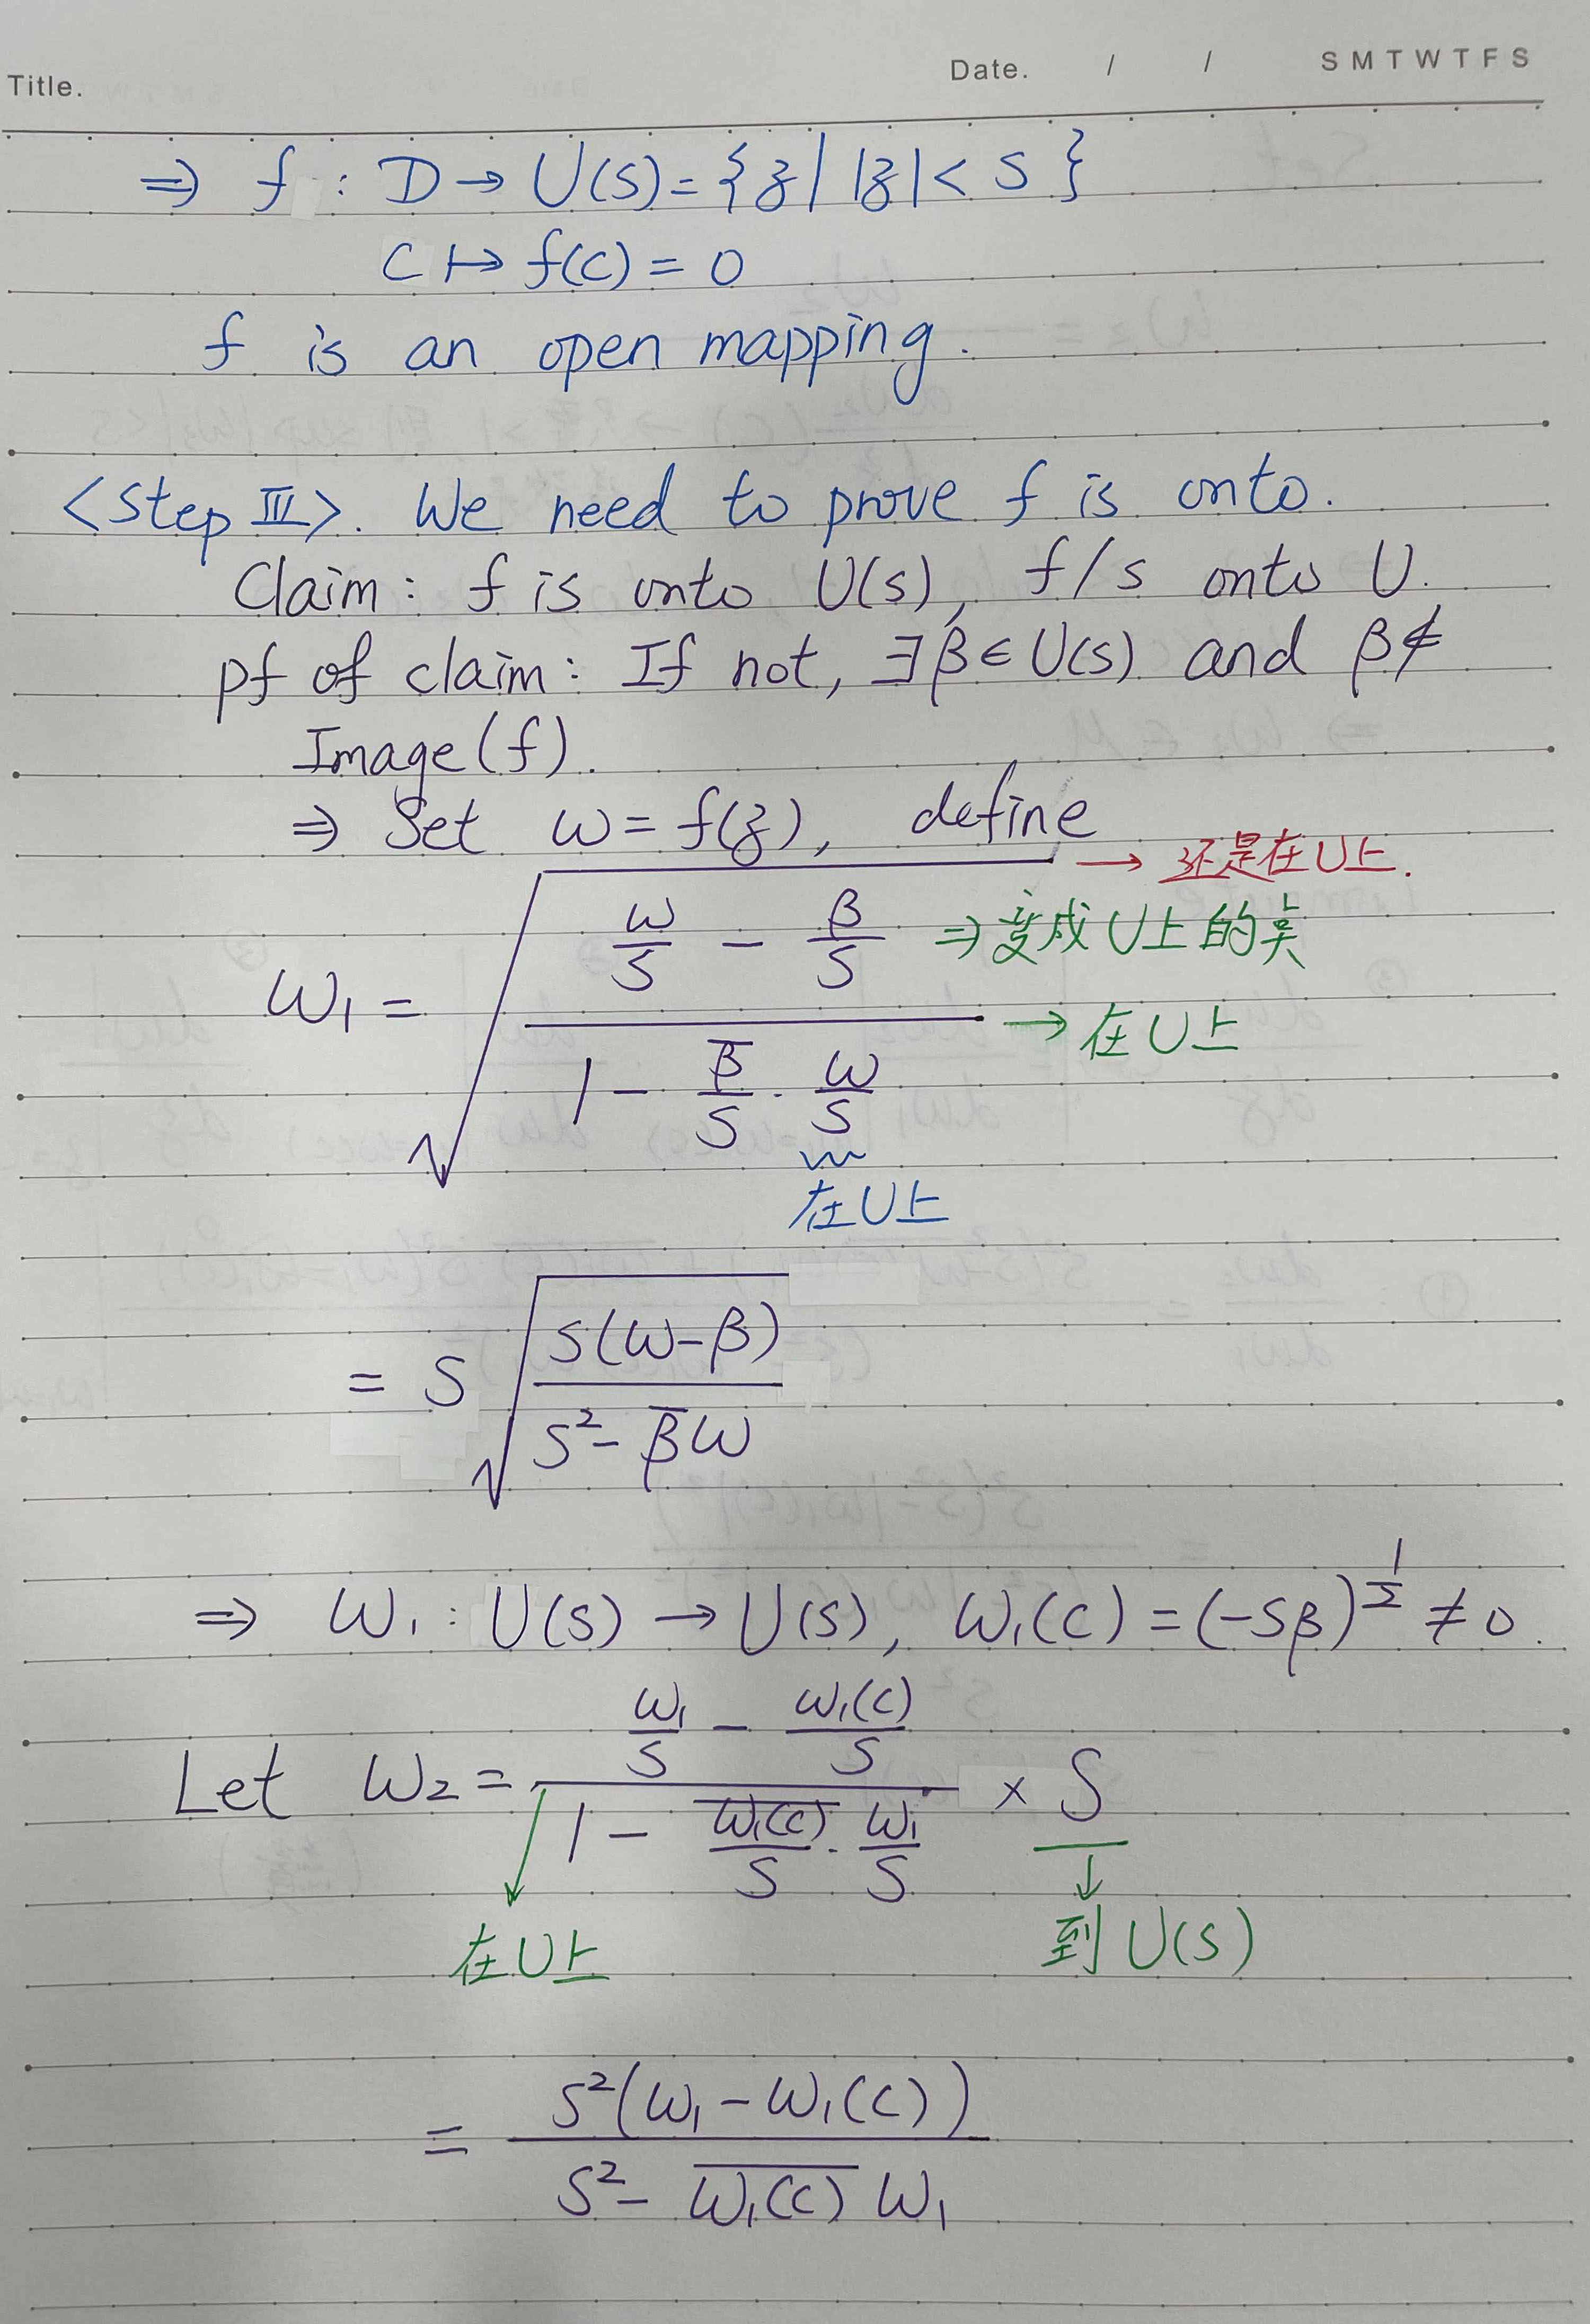 Title.
Date. / / S M T W T F S
⇒ f : D → U(s) = {z | |z| < s}
c ↦ f(c) = 0
f is an open mapping.
<Step Ⅲ>. We need to prove f is onto.
Claim: f is onto U(s), f/s onto U.
pf of claim: If not, ∃β∈U(s) and β∉
Image(f).
⇒ Set w = f(z), define
→ 还是在U上.
w₁ = √((w/s − β/s)/(1 − β̅/s · w/s))
⇒ 变成U上的点
→ 在U上
在U上
= s √(s(w−β)/(s²−β̅w))
⇒ w₁ : U(s) → U(s), w₁(c) = (−sβ)^(1/2) ≠ 0.
Let w₂ = (w₁/s − w₁(c)/s)/(1 − \overline{w₁(c)}/s · w₁/s) × s
在U上
↓ 到 U(s)
= s²(w₁ − w₁(c))/(s² − \overline{w₁(c)} w₁)